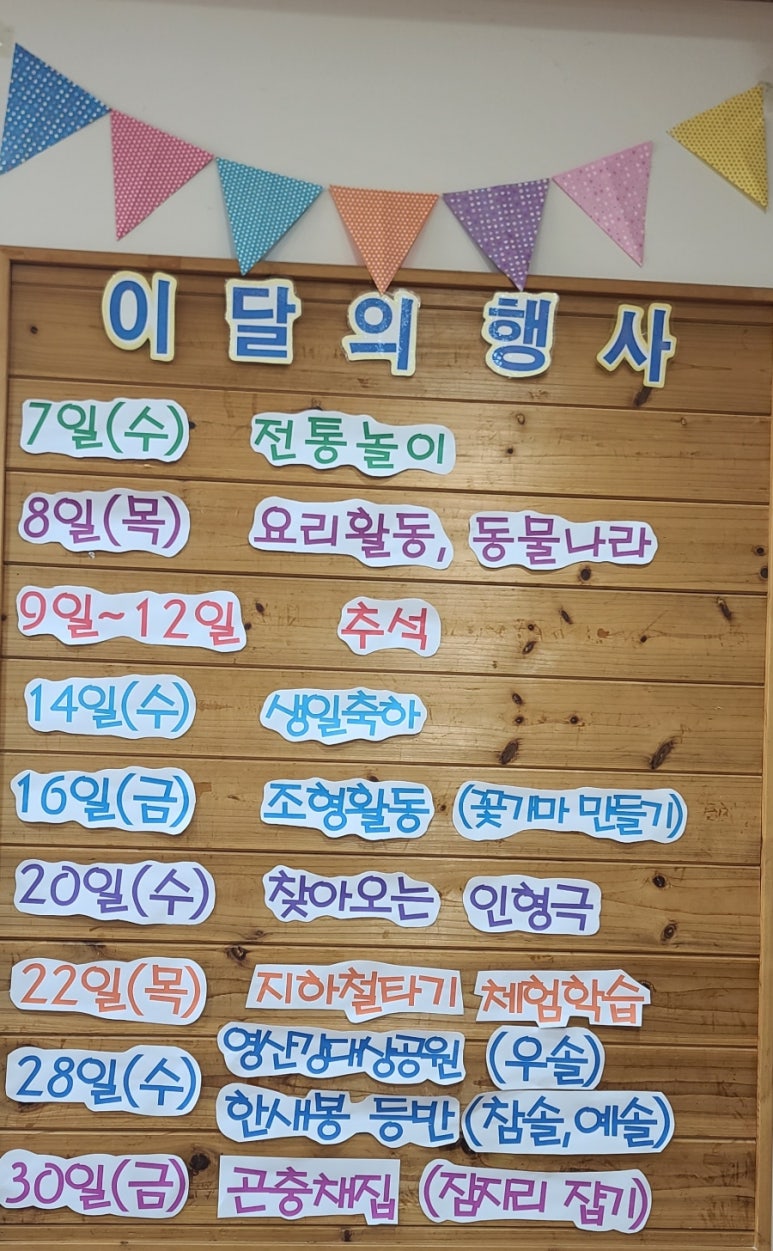 이달의 행사
7일(수) 전통놀이
8일(목) 요리활동, 동물나라
9일~12일 추석
14일(수) 생일축하
16일(금) 조형활동 (꽃가마 만들기)
20일(수) 찾아오는 인형극
22일(목) 지하철타기 체험학습
28일(수) 영산강대상공원 (우솔)
한새봉 등반 (참솔,예솔)
30일(금) 곤충채집 (잠자리 잡기)